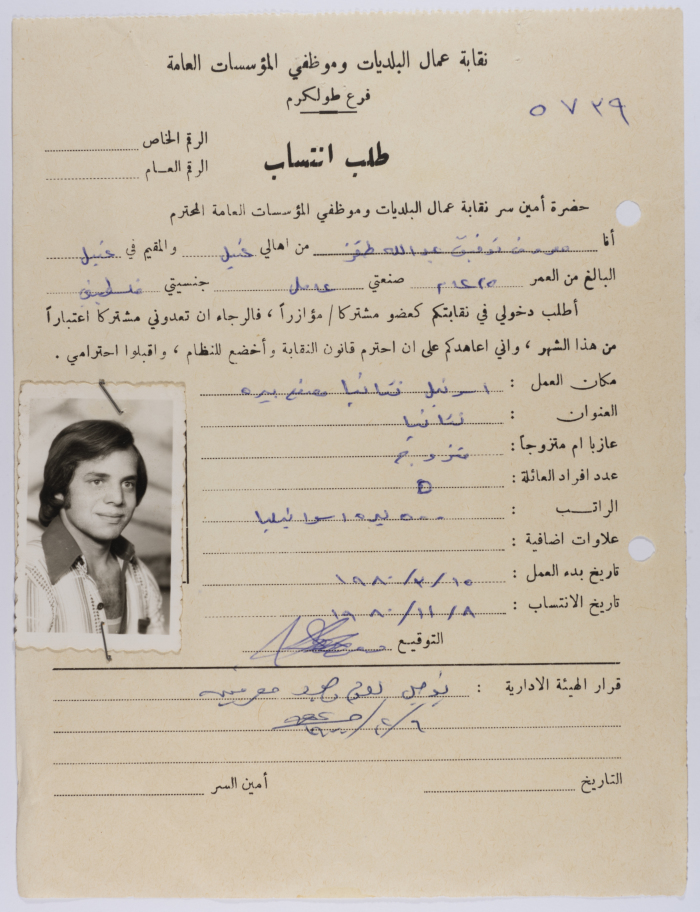 نقابة عمال البلديات وموظفي المؤسسات العامة
فرع طولكرم
٥٧٣٩
الرقم الخاص
الرقم العـام
طلب انتساب
حضرة أمين سر نقابة عمال البلديات وموظفي المؤسسات العامة المحترم
أنا توفيق عبدالله من اهالي عتيل والمقيم في عتيل
البالغ من العمر صنعتي عامل جنسيتي فلسطيني
أطلب دخولي في نقابتكم كعضو مشتركا / مؤازراً ، فالرجاء ان تعدوني مشتركا اعتباراً
من هذا الشهر ، واني اعاهدكم على ان احترم قانون النقابة وأخضع للنظام ، واقبلوا احترامي .
مكان العمل : اسرائيل نتانيا مصنع بيره
العنوان : نتانيا
عازبا ام متزوجاً : متزوج
عدد افراد العائلة : ٥
الراتـــب : ليره اسرائيليا
علاوات اضافية :
تاريخ بدء العمل : ١٩٨٠/٣/١٥
تاريخ الانتساب : ١٩٨٠/١١/٨
التوقيع
قرار الهيئة الادارية :
التاريخ
أمين السر